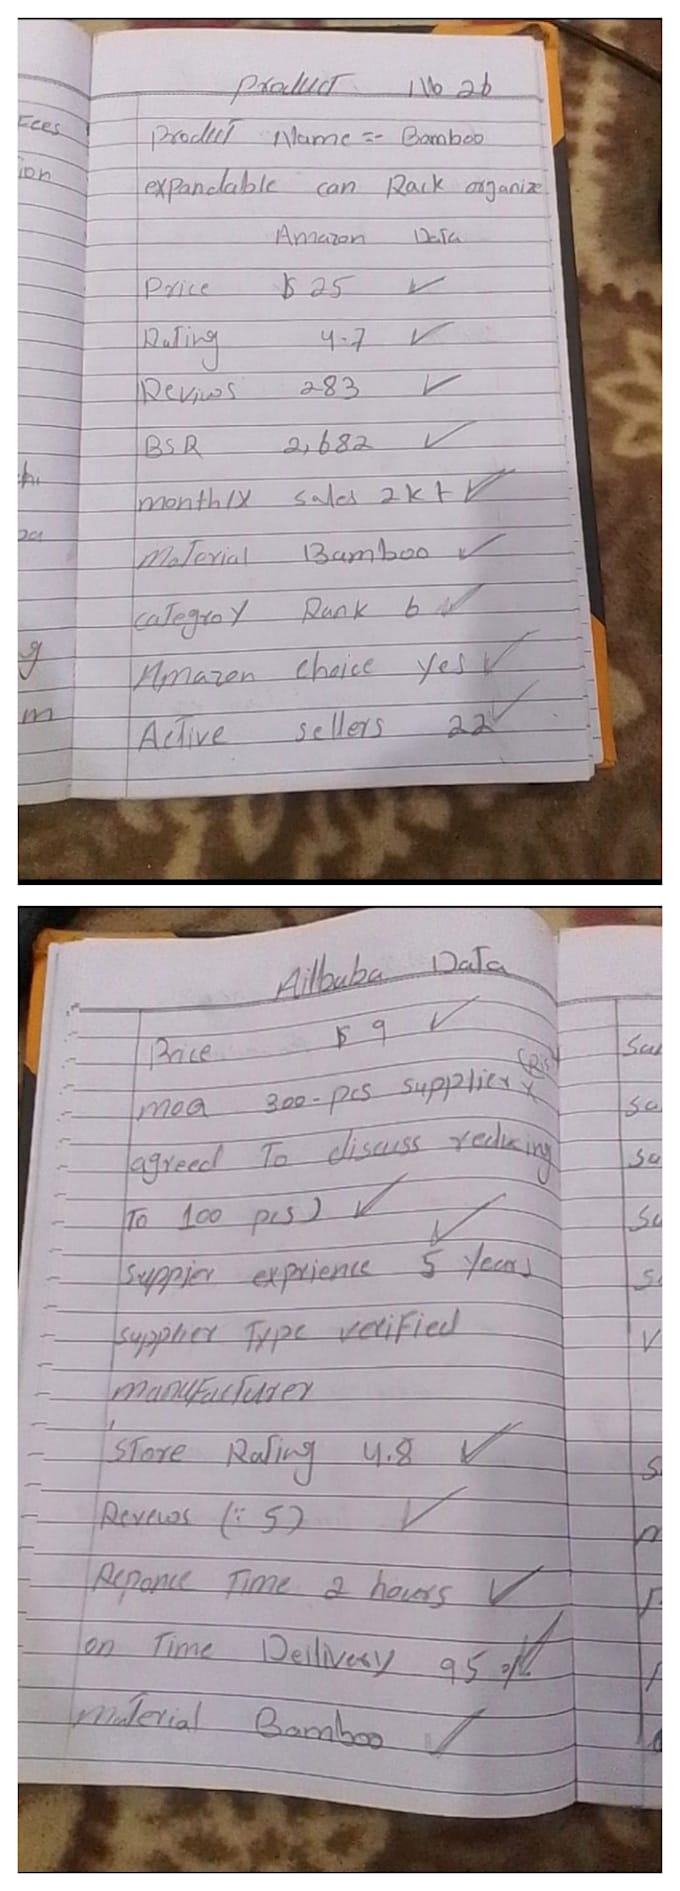 Product No 26
Product Name =- Bamboo
expandable can Rack organize
Amazon Data
Price $ 25 ✓
Rating 4.7 ✓
Reviws 283 ✓
BSR 2,682 ✓
monthly sales 2k+ ✓
Material Bamboo ✓
categroy Rank 6 ✓
Amazon choice yes ✓
Active sellers 22 ✓
Fees
ion
g
m
Ailbaba Data
Price $ 9 ✓
moq 300-pcs supplier
agreed To discuss reducing
To 100 pcs) ✓
suppier exprience 5 years ✓
supplier Type verified
manufacturer
Store Rating 4.8 ✓
Revews (: 5) ✓
Reponce Time 2 hours ✓
on Time Dellivery 95 % ✓
material Bamboo ✓